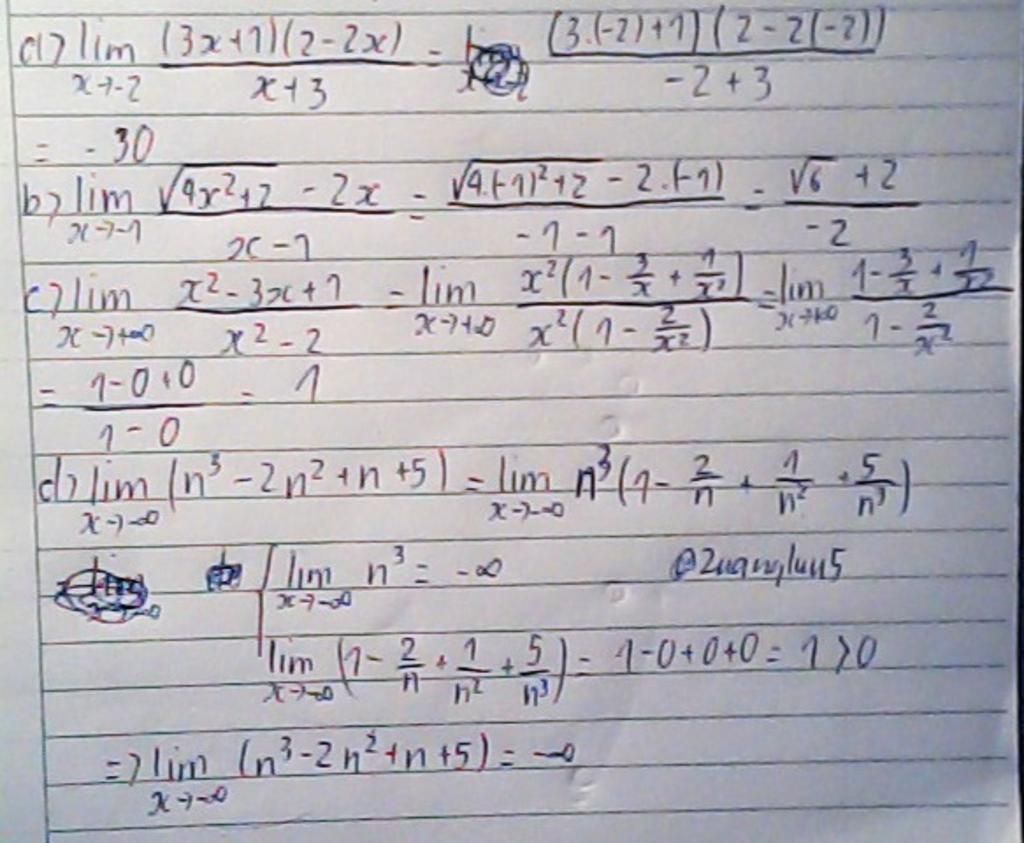 a) lim x→-2 (3x+1)(2-2x) / x+3 = (3.(-2)+1)(2-2(-2)) / -2+3
= -30
b) lim x→-1 √4x²+2 - 2x / x-1 = √4.(-1)²+2 - 2.(-1) / -1-1 = √6 + 2 / -2
c) lim x→+∞ x²-3x+1 / x²-2 = lim x→+∞ x²(1 - 3/x + 1/x²) / x²(1 - 2/x²) = lim x→+∞ 1 - 3/x + 1/x² / 1 - 2/x²
= 1-0+0 / 1-0 = 1
d) lim x→-∞ (n³ - 2n² + n + 5) = lim x→-∞ n³(1 - 2/n + 1/n² + 5/n³)
lim x→-∞ n³ = -∞ @2uangluu5
lim x→-∞ (1 - 2/n + 1/n² + 5/n³) = 1-0+0+0 = 1 > 0
=> lim x→-∞ (n³ - 2n² + n + 5) = -∞